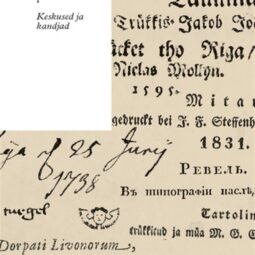 Keskused ja
kandjad
Trükkis Jakob Joa
ucket tho Riga/
Niclas Mollyn.
1595.
Mitau
gedruckt bei J. F. Steffenh
1831.
25 Junij
1738
РЕВЕЛЬ.
Въ типографіи наслѣ
Tartolin
trükkitud ja müa M. G. G
Dorpati Livonorum,